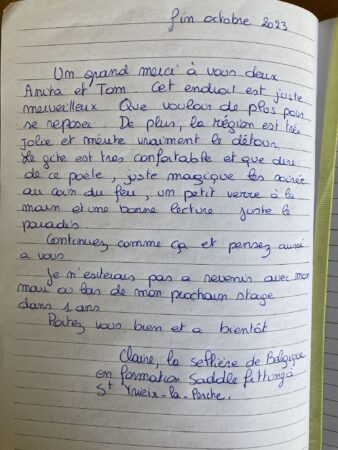 fin octobre 2023
Un grand merci à vous deux
Anita et Tom. Cet endroit est juste
merveilleux. Que vouloir de plus pour
se reposer. De plus, la région est très
jolie et mérite vraiment le détour.
Le gîte est très confortable et que dire
de ce poêle, juste magique les soirée
au coin du feu, un petit verre à la
main et une bonne lecture juste le
paradis
Continuez comme ça et pensez aussi
a vous
Je n'esiterais pas a revenir avec mon
mari de mon prochain stage
dans 1 ans
Portez vous bien et a bientôt
Claire, la sellière de Belgique
en formation Saddle fitting a
St Yrieix-la-Perche.